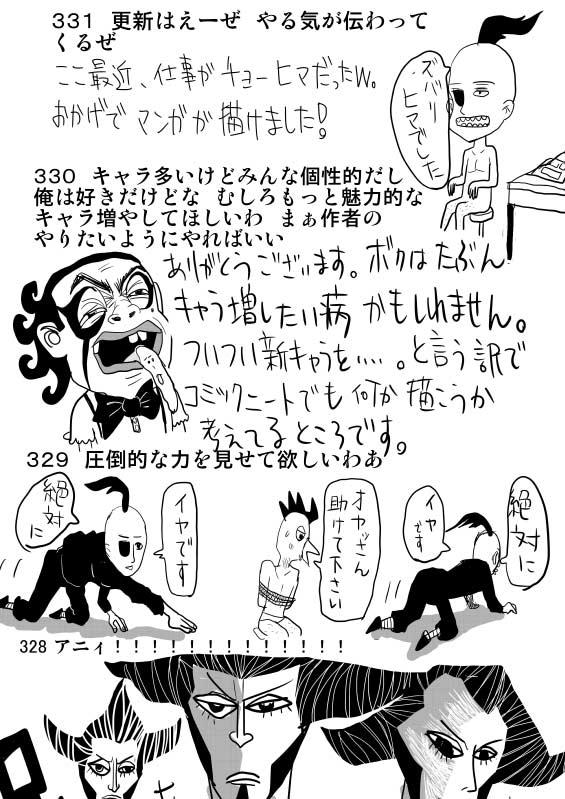 331 更新はえーぜ やる気が伝わって
くるぜ
ここ最近、仕事がチョーヒマだったw。
おかげでマンガが描けました！
ズバリ
ヒマでした
330 キャラ多いけどみんな個性的だし
俺は好きだけどな むしろもっと魅力的な
キャラ増やしてほしいわ まぁ作者の
やりたいようにやればいい
ありがとうございます。ボクはたぶん
キャラ増したい病かもしれません。
ついつい新キャラを・・・・。と言う訳で
コミックニートでも何か描こうか
考えてるところです。
329 圧倒的な力を見せて欲しいわあ
絶対に
イヤです
オヤッさん
助けて下さい
絶対に
イヤ
です
328 アニィ！！！！！！！！！！！！！